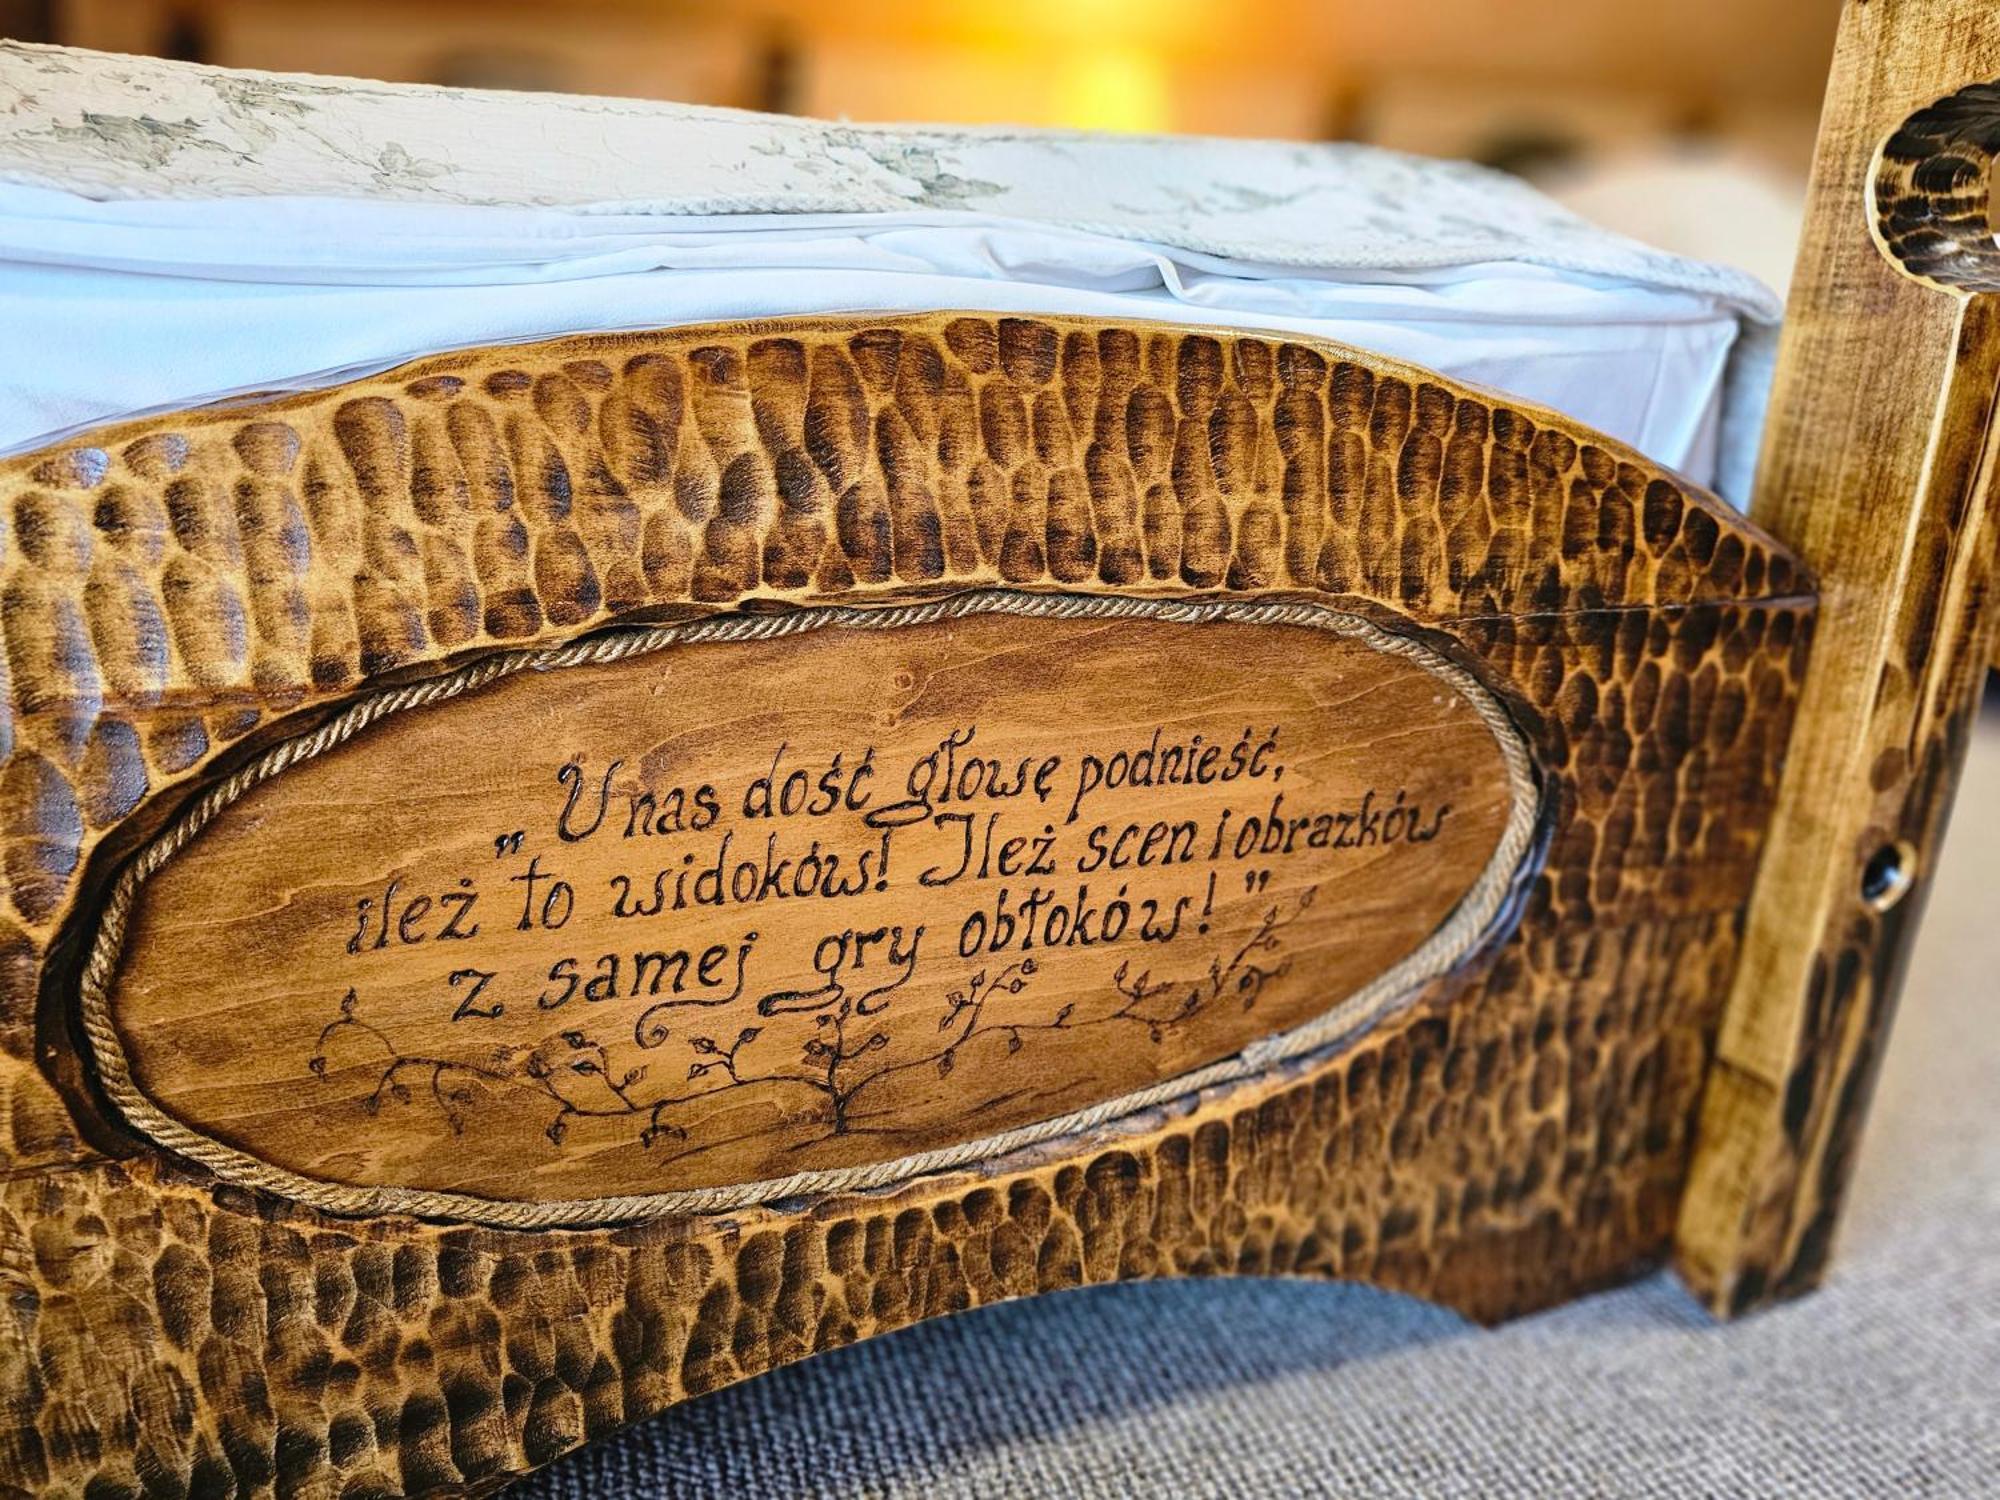 „U nas dość głowę podnieść,
ileż to widoków! Ileż scen i obrazków
z samej gry obłoków!”